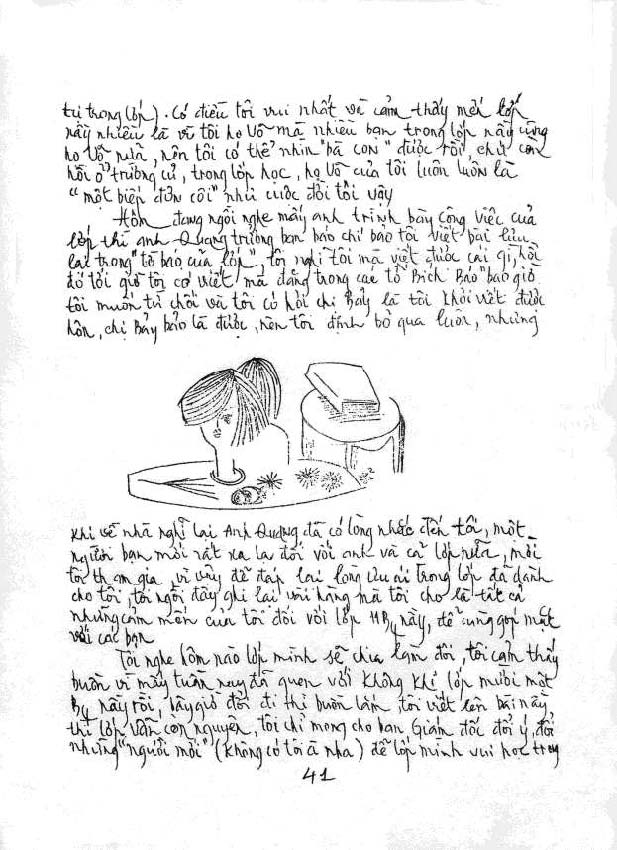 trí trong lớp). Có điều tôi vui nhất và cảm thấy mến lớp
nầy nhiều là vì tôi họ Võ mà nhiều bạn trong lớp nầy cũng
họ Võ nữa, nên tôi có thể nhìn "bà con" được rồi, chứ còn
hồi ở trường củ, trong lớp học, họ Võ của tôi luôn luôn là
"một biệp đơn côi" như cuộc đời tôi vậy
Hôm đang ngồi nghe mấy anh trình bày công việc của
lớp thì anh Quang trưởng ban báo chí bảo tôi viết bài lưu
lại trong "tờ báo của lớp", tôi nghĩ tôi mà viết được cái gì, hồi
đó tới giờ tôi có viết mà đăng trong các tờ "Bích Báo" bao giờ
tôi muốn từ chối và tôi có hỏi chị Bảy là tôi khỏi viết được
hôn, chị Bảy bảo là được, nên tôi định bỏ qua luôn, nhưng
khi về nhà nghĩ lại Anh Quang đã có lòng nhắc đến tôi, một
người bạn mới rất xa lạ đối với anh và cả lớp nữa, mời
tôi tham gia, vì vậy để đáp lại lòng ưu ái trong lớp đã dành
cho tôi, tôi ngồi đây ghi lại vài hàng mà tôi cho là tất cả
những cảm mến của tôi đối với lớp 11B4 nầy, để cùng góp mặt
với các bạn
Tôi nghe hôm nào lớp mình sẽ chia làm đôi, tôi cảm thấy
buồn vì mấy tuần nay đã quen với không khí lớp mười một
B4 nầy rồi, bây giờ đổi đi thì buồn lắm, tôi viết lên bài nầy,
thì lớp vẫn còn nguyên, tôi chỉ mong cho ban Giám đốc đổi ý, đổi
những "người mới" (không có tôi à nha) để lớp mình vui học trong
41